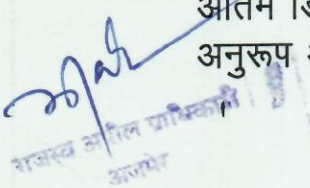 अंतिम डि
अनुरूप अ
राजस्व अपील प्राधिकारी
अजमेर